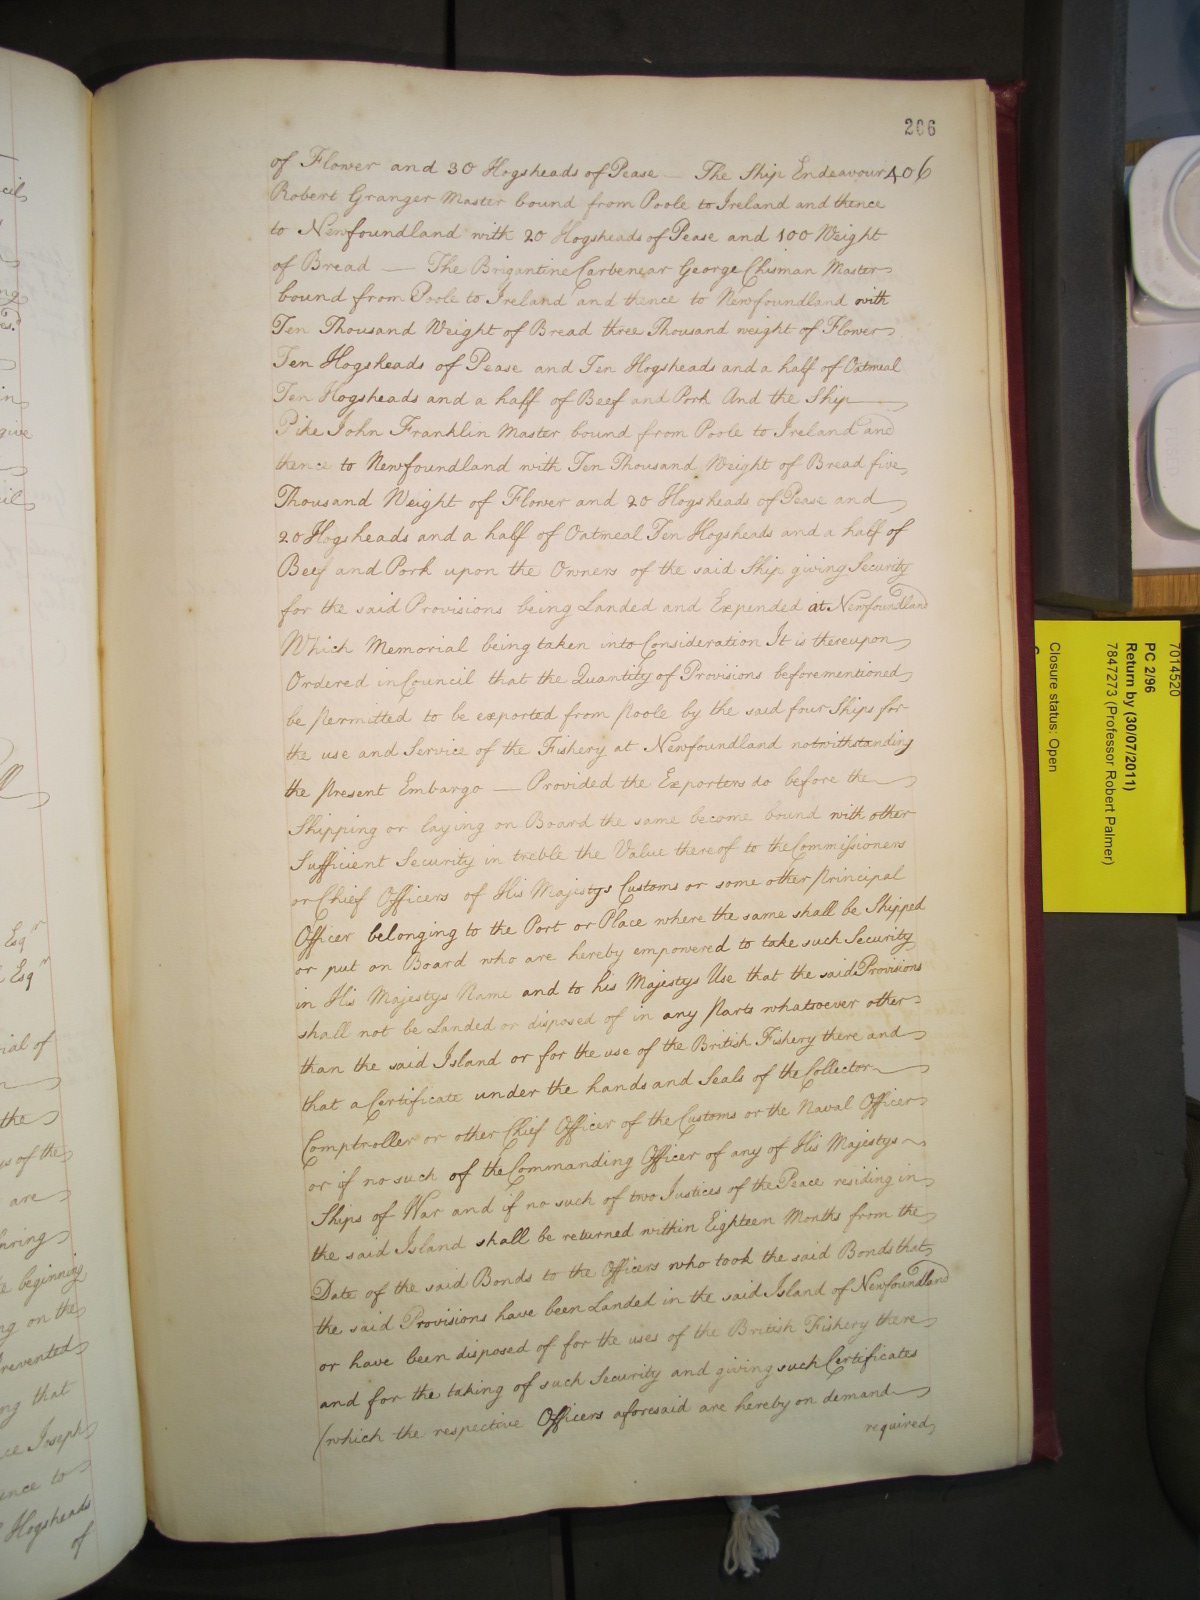 206
406
of Flower and 30 Hogsheads of Pease — The Ship Endeavour
Robert Granger Master bound from Poole to Ireland and thence
to Newfoundland with 20 Hogsheads of Pease and 100 Weight
of Bread — The Brigantine Carbenear George Chisman Master
bound from Poole to Ireland and thence to Newfoundland with
Ten Thousand Weight of Bread three Thousand weight of Flower
Ten Hogsheads of Pease and Ten Hogsheads and a half of Oatmeal
Ten Hogsheads and a half of Beef and Pork And the Ship
Pike John Franklin Master bound from Poole to Ireland and
thence to Newfoundland with Ten Thousand Weight of Bread five
Thousand Weight of Flower and 20 Hogsheads of Pease and
20 Hogsheads and a half of Oatmeal Ten Hogsheads and a half of
Beef and Pork upon the Owners of the said Ship giving Security
for the said Provisions being Landed and Expended at Newfoundland
Which Memorial being taken into Consideration It is thereupon
Ordered in Council that the Quantity of Provisions beforementioned
be permitted to be exported from Poole by the said four Ships for
the use and Service of the Fishery at Newfoundland notwithstanding
the present Embargo — Provided the Exporters do before the
Shipping or laying on Board the same become bound with other
Sufficient Security in treble the Value thereof to the Commissioners
or Chief Officers of His Majestys Customs or some other principal
Officer belonging to the Port or Place where the same shall be Shipped
or put on Board who are hereby empowered to take such Security
in His Majestys Name and to his Majestys Use that the said Provisions
shall not be Landed or disposed of in any Parts whatsoever other
than the said Island or for the use of the British Fishery there and
that a Certificate under the hands and Seals of the Collector
Comptroller or other Chief Officer of the Customs or the Naval Officer
or if no such of the Commanding Officer of any of His Majestys
Ships of War and if no such of two Justices of the Peace residing in
the said Island shall be returned within Eighteen Months from the
Date of the said Bonds to the Officers who took the said Bonds that
the said Provisions have been Landed in the said Island of Newfoundland
or have been disposed of for the uses of the British Fishery there
and for the taking of such Security and giving such Certificates
(which the respective Officers aforesaid are hereby on demand
required
give
Esqr
Esqr
ial of
the
of the
are
beginning
on the
that
Joseph
to
Hogsheads
of
7014520
PC 2/96
Return by (30/07/2011)
7847273 (Professor Robert Palmer)
Closure status: Open